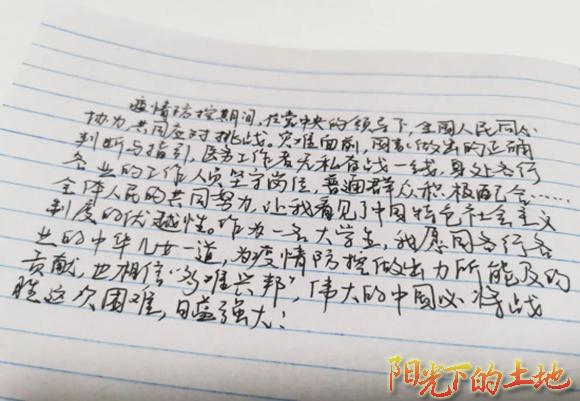 疫情防控期间，在党中央的领导下，全国人民同心
协力共同应对挑战。灾难面前，国家做出的正确
判断与指引，医务工作者无私奋战一线，身处各行
各业的工作人员坚守岗位，普通群众积极配合……
全体人民的共同努力，让我看见了中国特色社会主义
制度的优越性。作为一名大学生，我愿同各行各
业的中华儿女一道，为疫情防控做出力所能及的
贡献，也相信“多难兴邦”，伟大的中国必将战
胜这次困难，日益强大！
阳光下的土地